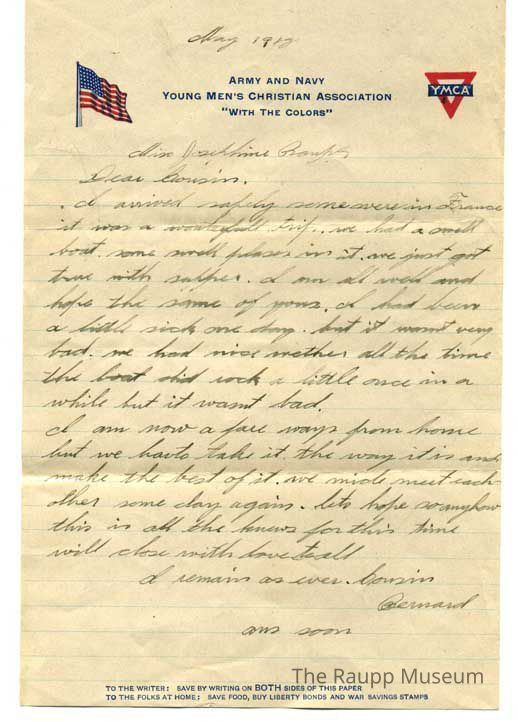 May 1918
ARMY AND NAVY
YOUNG MEN'S CHRISTIAN ASSOCIATION
"WITH THE COLORS"
YMCA
Miss Josephine Raupp
Dear Cousin.
. I arrived safely somewere in France
it was a wonderfull trip. we had a swell
boat. some swell places in it. we just got
true with supper. I am all well and
hope the same of yours. I had been
a little sick one day. but it wasnt very
bad. we had nice wether all the time
the boat did rock a little once in a
while but it wasnt bad.
I am now a fare ways from home
but we have to take it the way it is and
make the best of it. we mide meet each
other some day again. lets hope so anyhow
this is all the knews for this time
will close with love to all
I remain as ever. Cousin
Bernard
ans soon
The Raupp Museum
TO THE WRITER: SAVE BY WRITING ON BOTH SIDES OF THIS PAPER
TO THE FOLKS AT HOME: SAVE FOOD, BUY LIBERTY BONDS AND WAR SAVINGS STAMPS